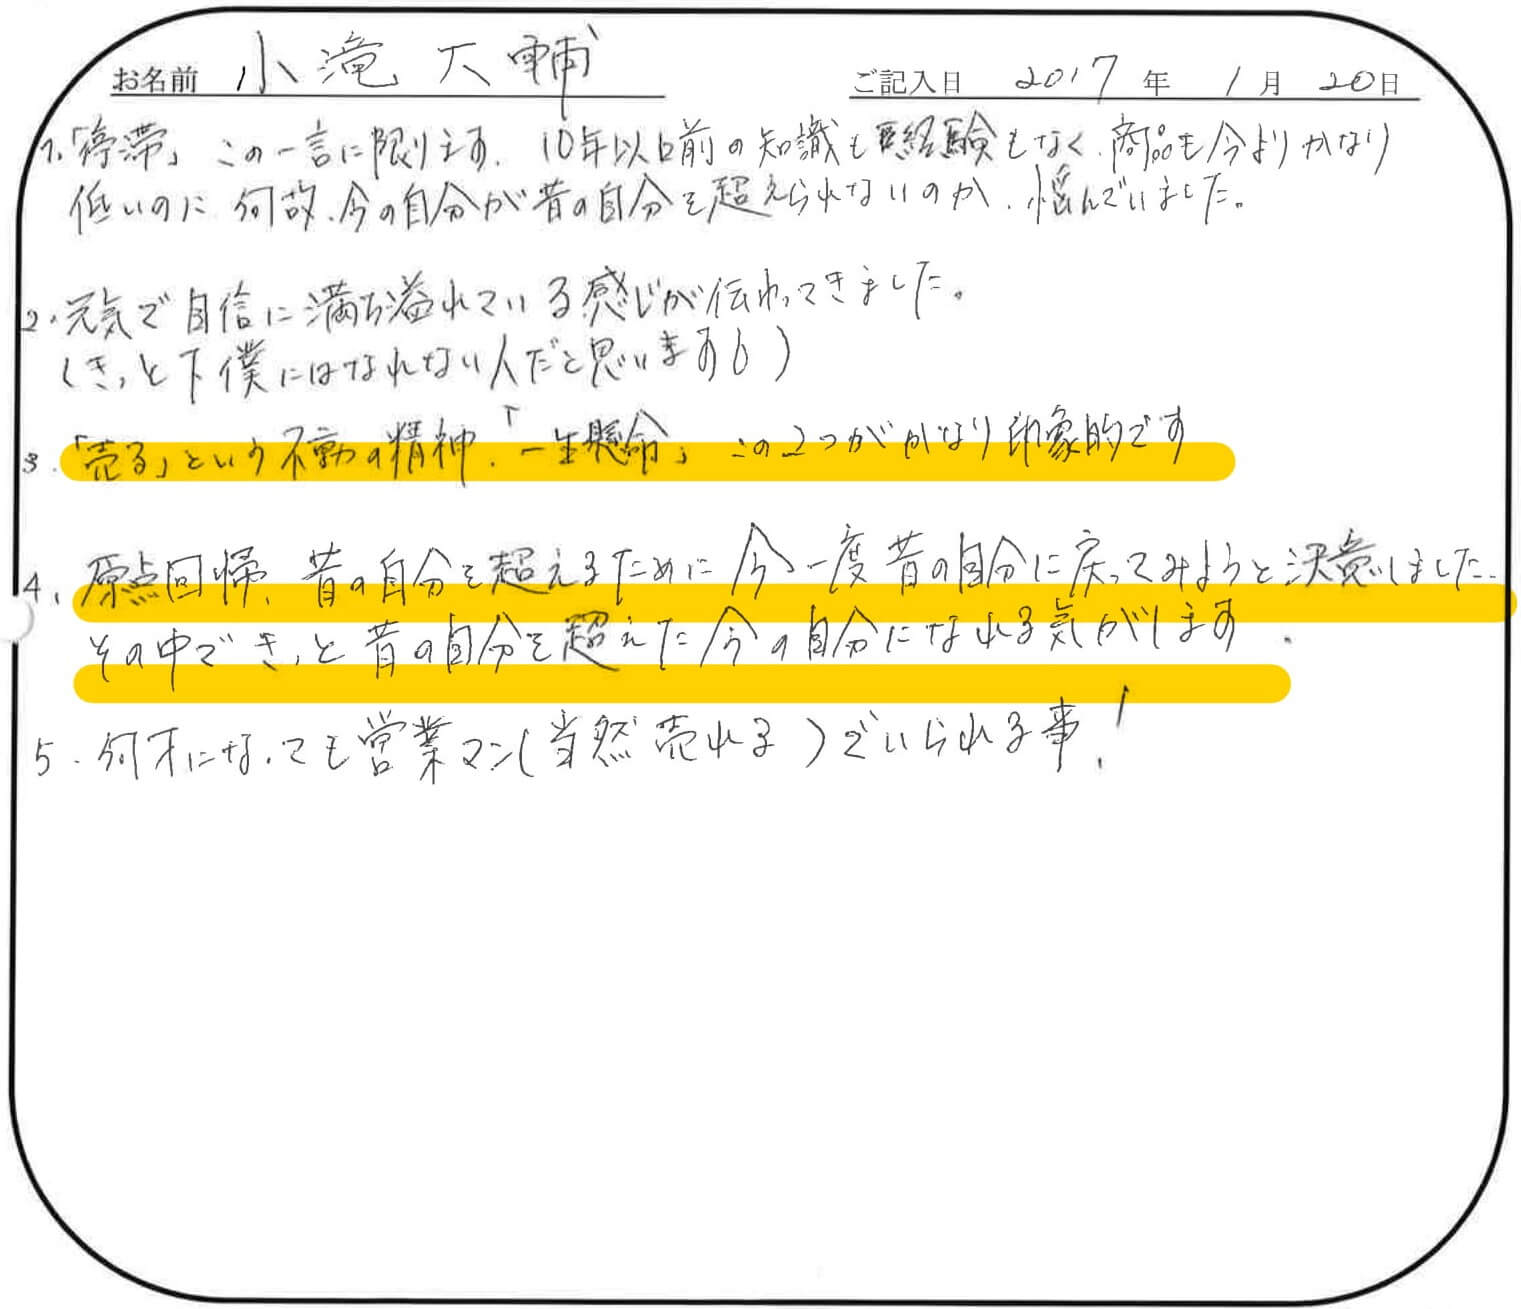 お名前 小滝 大輔 ご記入日 2017 年 1 月 20 日
1.「停滞」この一言に限ります。10年以上前の知識も経験もなく、商品も今よりかなり
低いのに何故、今の自分が昔の自分を超えられないのか、悩んでいました。
2.元気で自信に満ち溢れている感じが伝わってきました。
(きっと下僕にはなれない人だと思います(^^))
3.「売る」という不動の精神、「一生懸命」この2つがかなり印象的です
4.原点回帰、昔の自分を超えるために今一度昔の自分に戻ってみようと決意しました。
その中できっと昔の自分を超えた今の自分になれる気がします。
5.何才になっても営業マン(当然売れる)でいられる事!